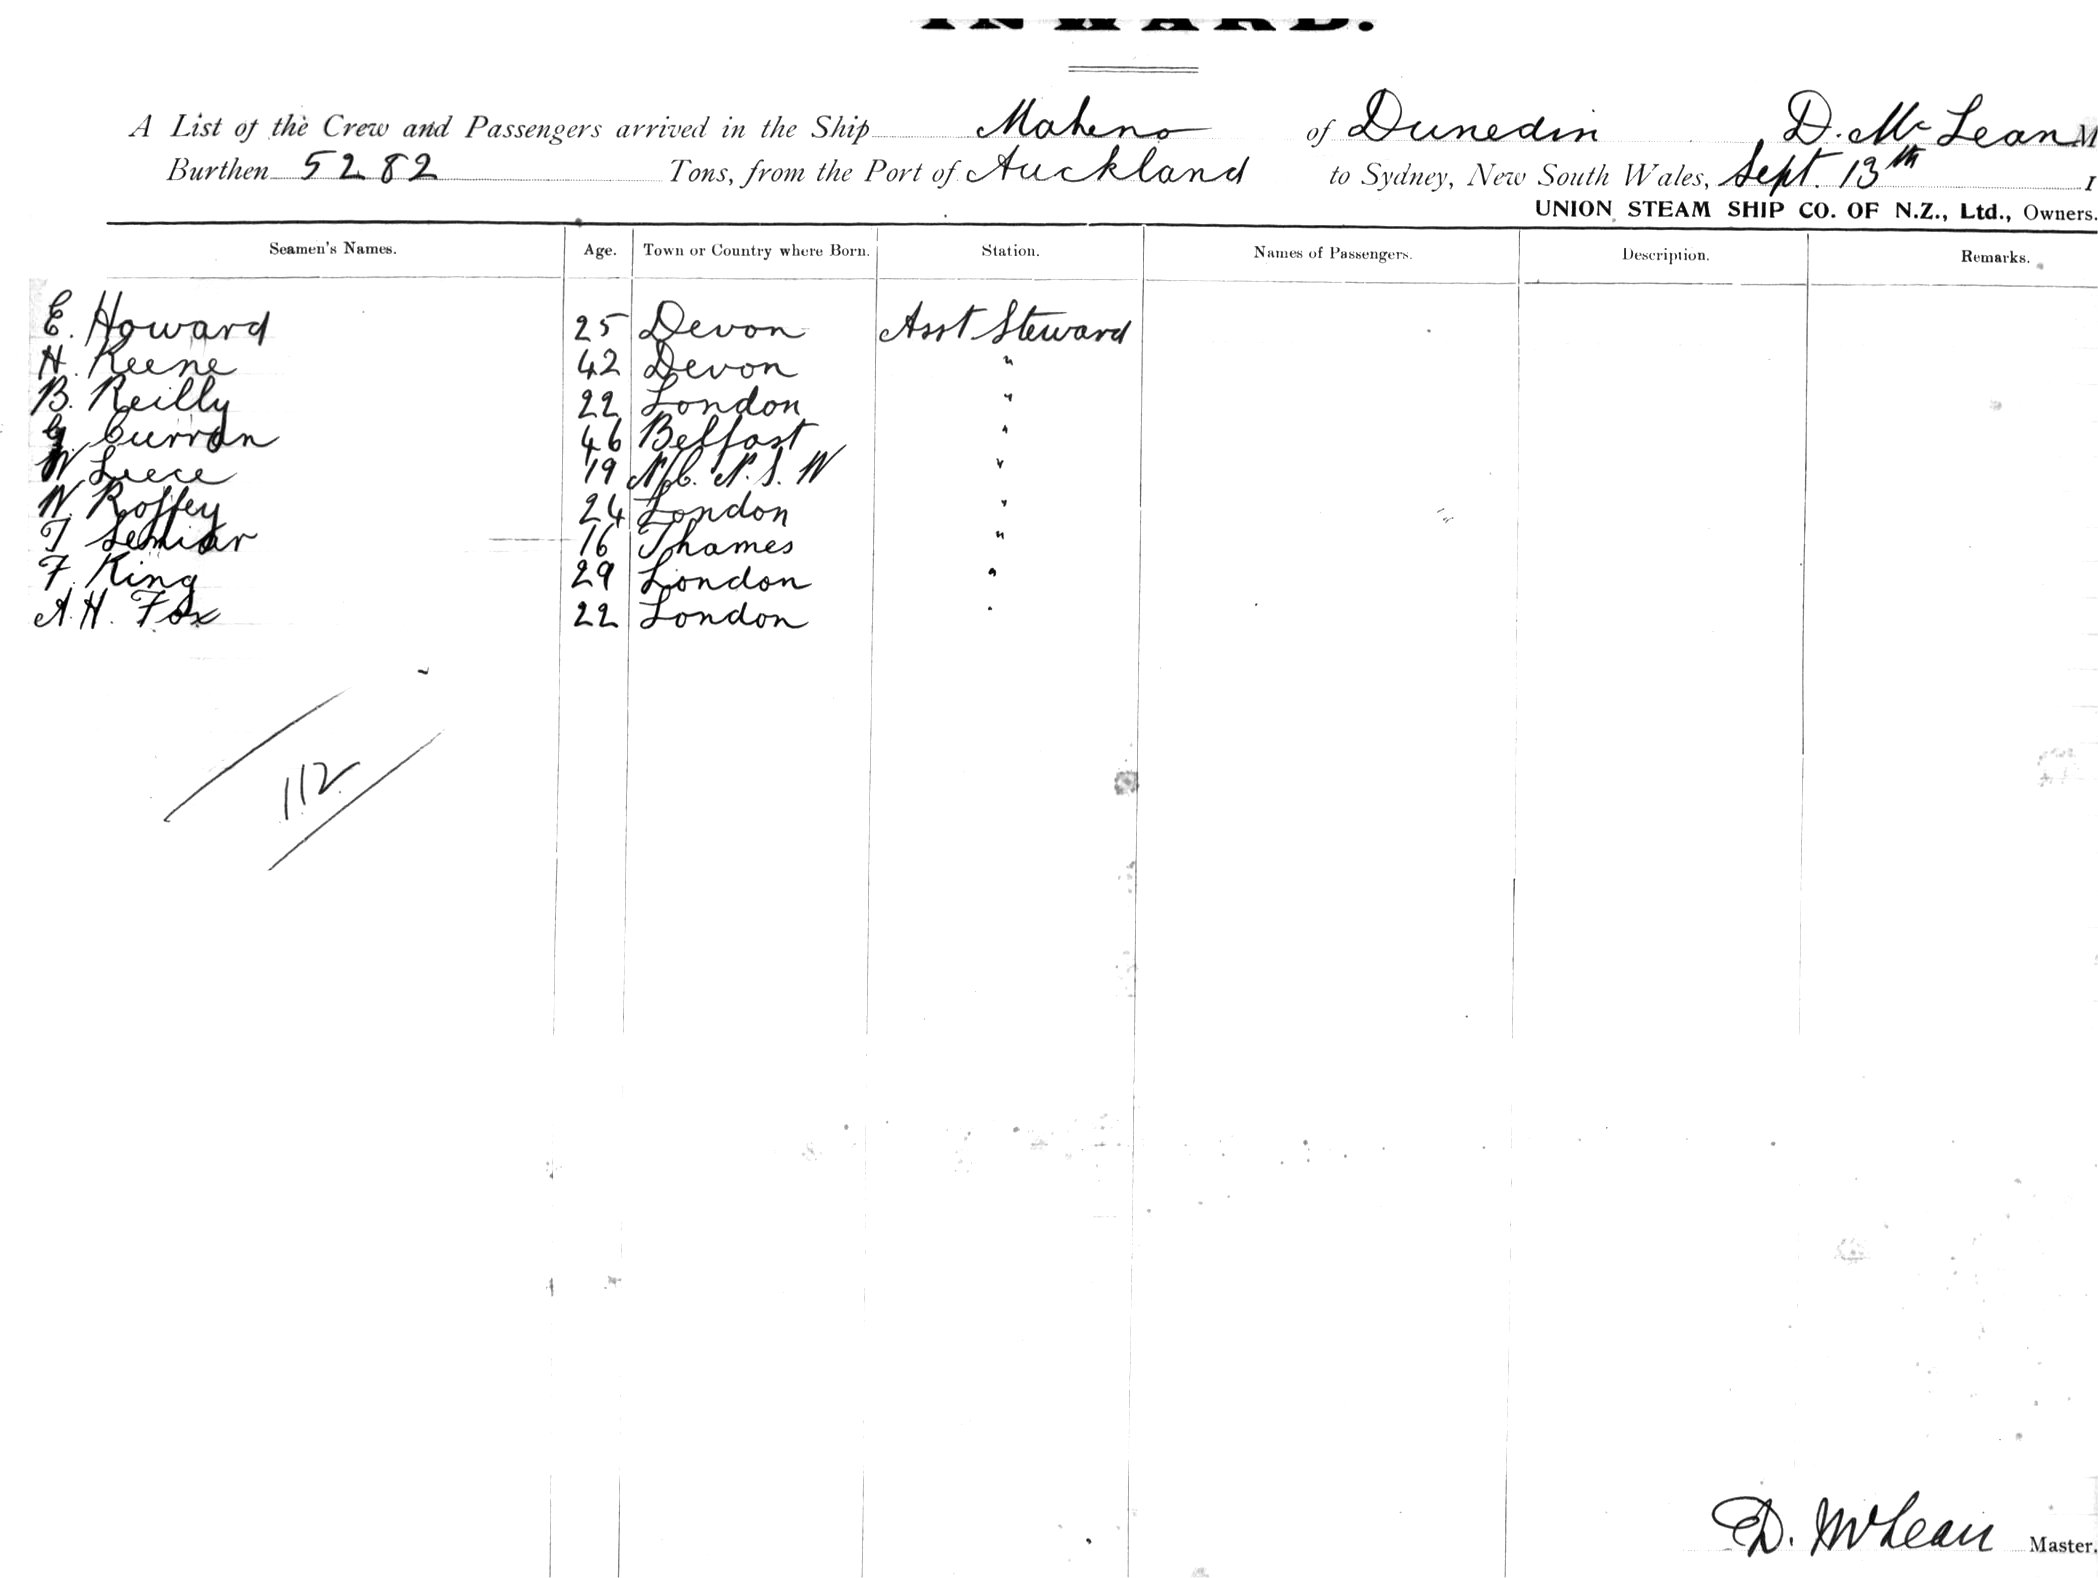 INWARD.
A List of the Crew and Passengers arrived in the Ship Maheno of Dunedin D. Mc Lean M
Burthen 5282 Tons, from the Port of Auckland to Sydney, New South Wales, Sept. 13th 1
UNION STEAM SHIP CO. OF N.Z., Ltd., Owners.
Seamen's Names. Age. Town or Country where Born. Station. Names of Passengers. Description. Remarks.
E. Howard 25 Devon Asst Steward
H. Keene 42 Devon "
B. Reilly 22 London "
G Curran 46 Belfast "
W Leece 19 N/C. N. S. W "
W. Roffey 24 London "
T 16 Thames "
F. King 29 London "
A. H. Fox 22 London "
112
D. McLean Master.